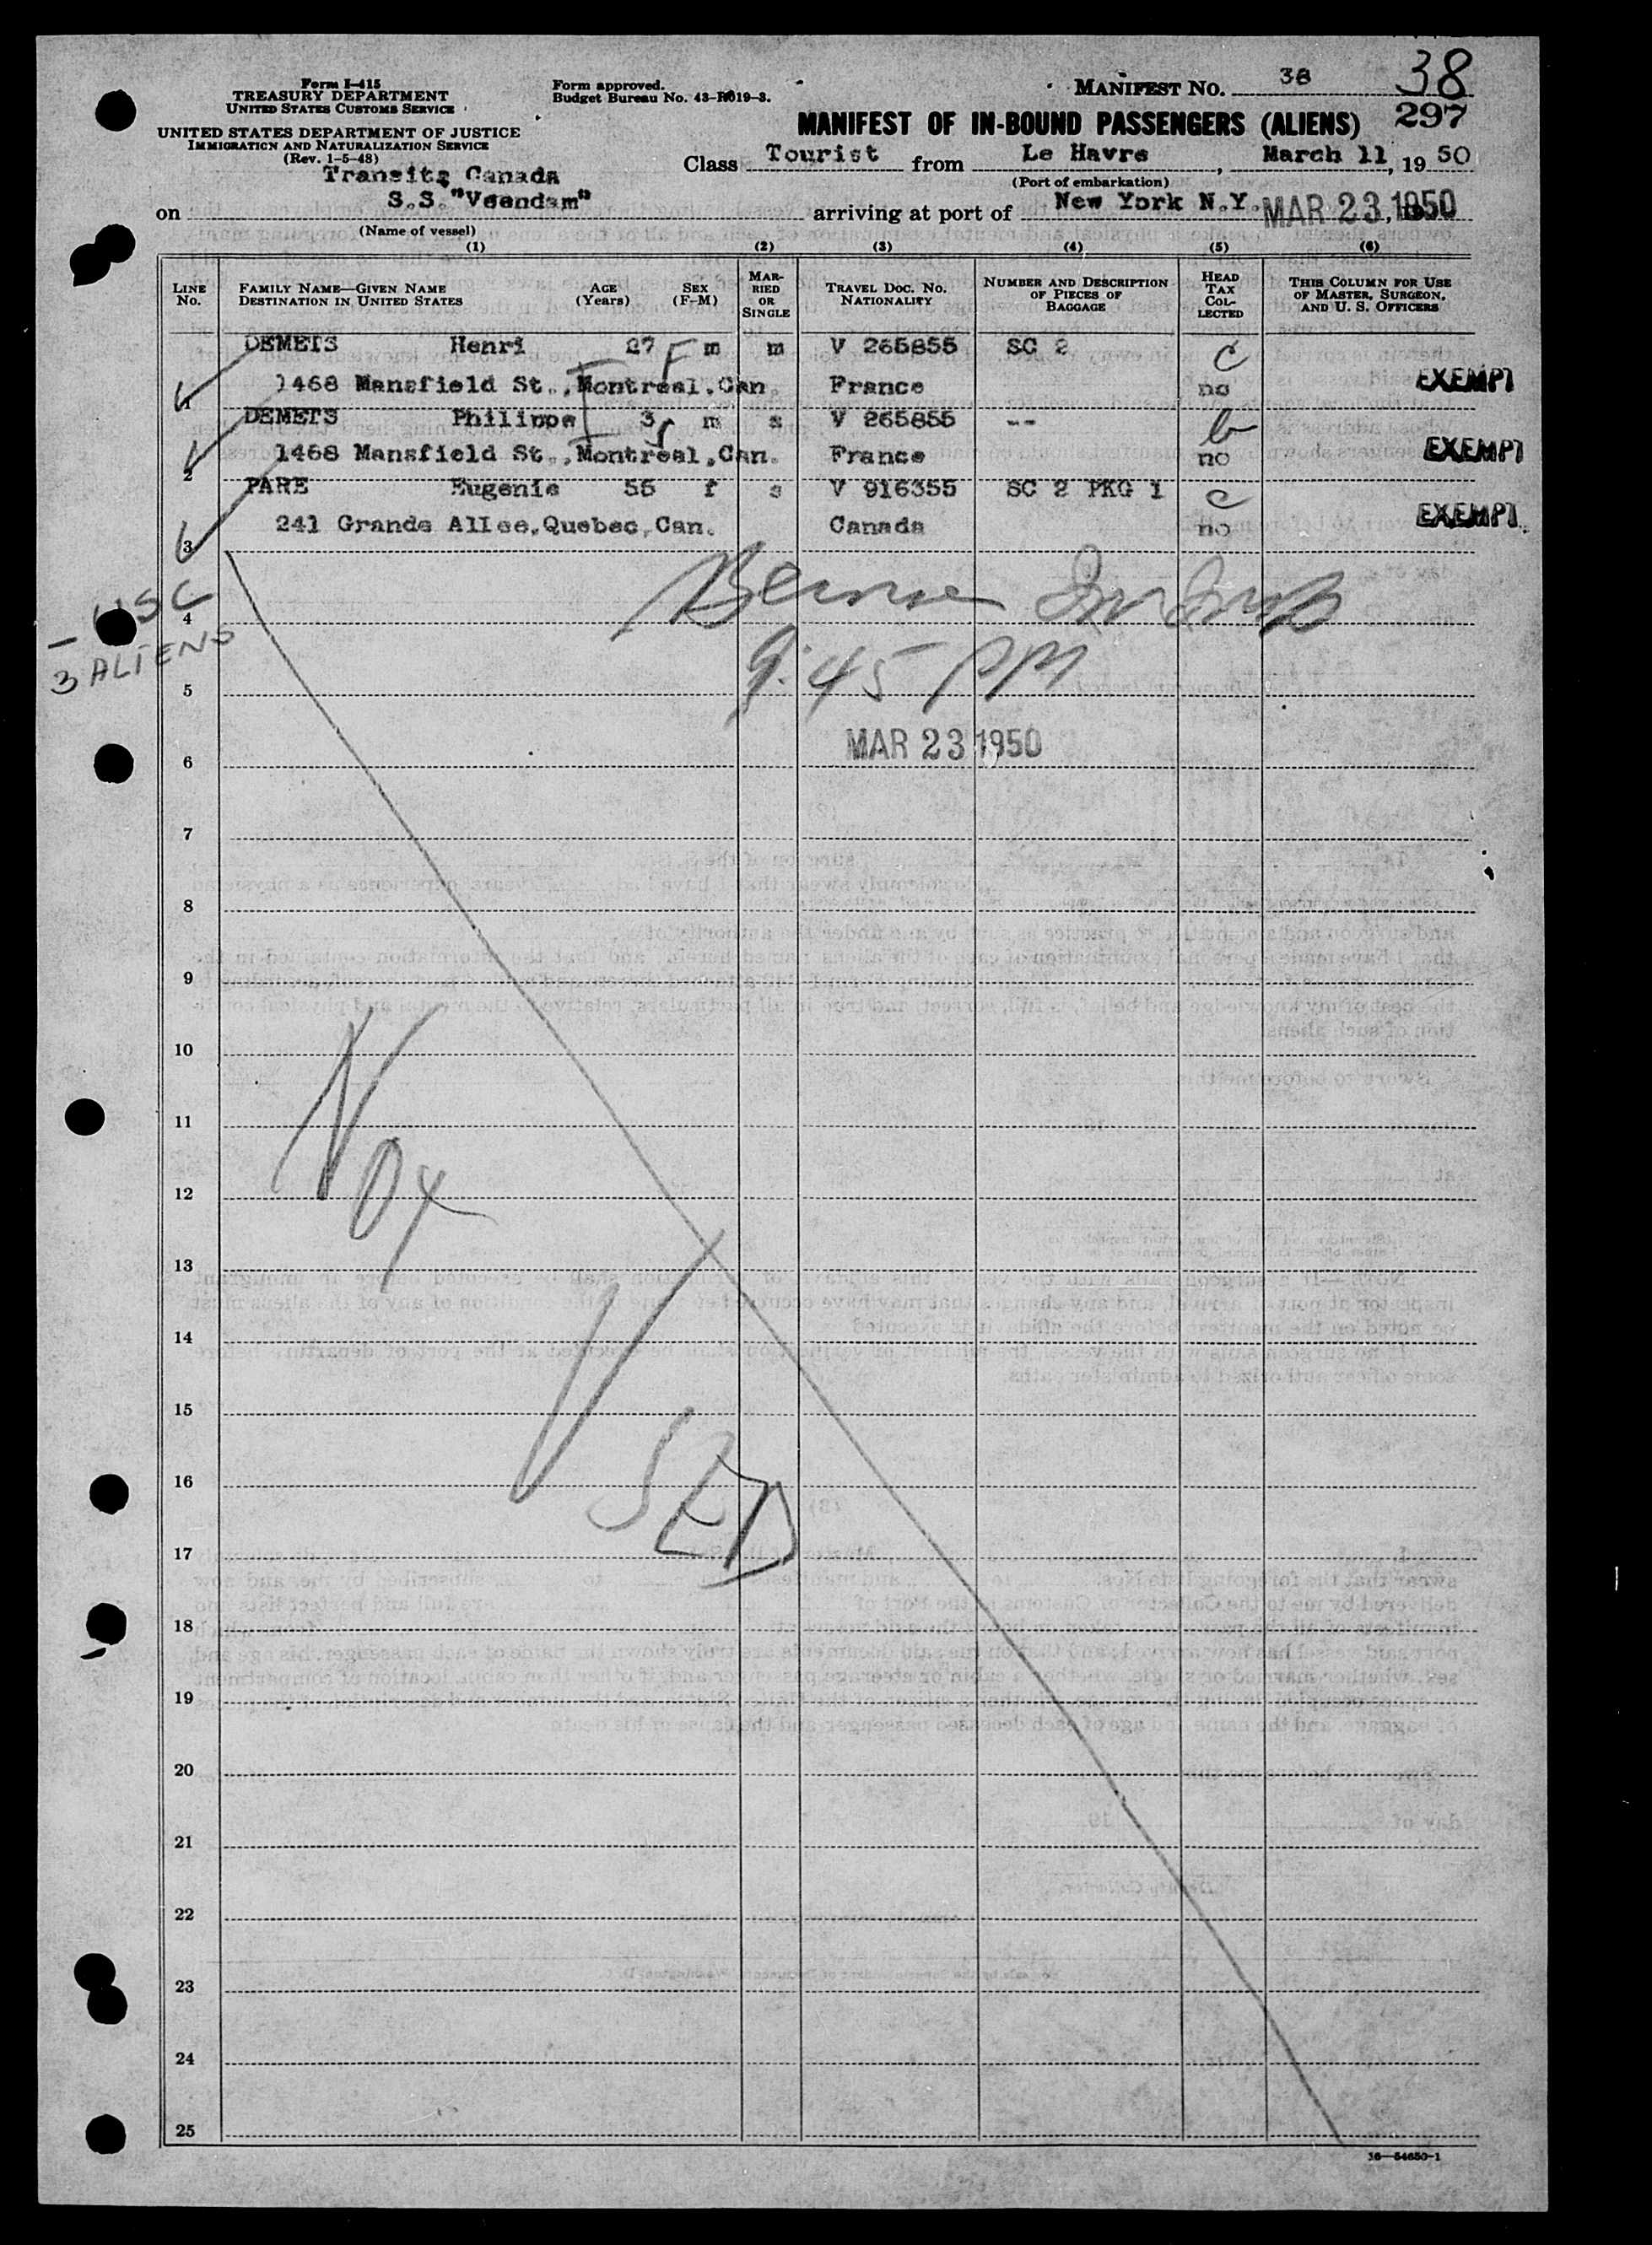 Form I-415
TREASURY DEPARTMENT
UNITED STATES CUSTOMS SERVICE
UNITED STATES DEPARTMENT OF JUSTICE
IMMIGRATION AND NATURALIZATION SERVICE
(Rev. 1-5-48)
Form approved.
Budget Bureau No. 43-R019-3.
MANIFEST NO. 38
38
297
MANIFEST OF IN-BOUND PASSENGERS (ALIENS)
Class Tourist from Le Havre, March 11, 1950
(Port of embarkation)
Transits Canada
on S.S. "Veendam" arriving at port of New York N.Y. MAR 23 1950
(Name of vessel)
(1) (2) (3) (4) (5) (6)
LINE NO.
FAMILY NAME—GIVEN NAME
DESTINATION IN UNITED STATES
AGE (Years)
SEX (F-M)
MARRIED OR SINGLE
TRAVEL DOC. NO.
NATIONALITY
NUMBER AND DESCRIPTION OF PIECES OF BAGGAGE
HEAD TAX COLLECTED
THIS COLUMN FOR USE OF MASTER, SURGEON, AND U. S. OFFICERS
DEMETS Henri 27 F m m V 265855 SC 2 C
1 1468 Mansfield St., Montreal, Can. France no EXEMPT
DEMETS Philippe 3 m s V 265855 -- b
2 1468 Mansfield St., Montreal, Can. France no EXEMPT
PARE Eugenie 55 f s V 916355 SC 2 PKG 1 C
3 241 Grande Allee, Quebec, Can. Canada no EXEMPT
- USC
3 ALIENS
4
9:45 PM
5
MAR 23 1950
6
7
8
9
10
11
Not
12
13
14
15
USED
16
17
18
19
20
21
22
23
24
25
16—54650-1